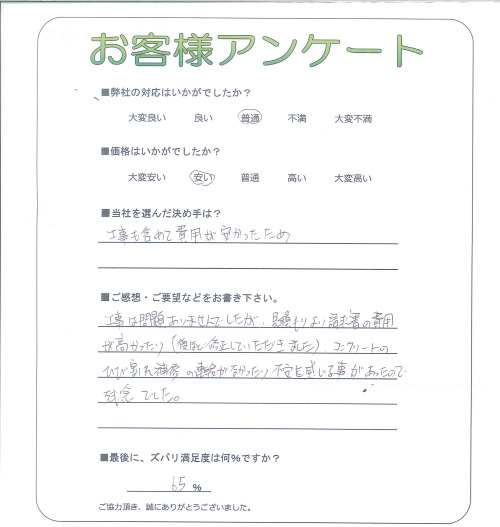 お客様アンケート
■弊社の対応はいかがでしたか？
大変良い 良い 普通 不満 大変不満
■価格はいかがでしたか？
大変安い 安い 普通 高い 大変高い
■当社を選んだ決め手は？
工事も含めて費用が安かったため
■ご感想・ご要望などをお書き下さい。
工事は問題ありませんでしたが、見積もりより請求書の費用
が高かったり（後ほど修正していただきました）、コンクリートの
ひび割れ補修の連絡がなかったり不安を感じる事があったので
残念でした。
■最後に、ズバリ満足度は何％ですか？
65 %
ご協力頂き、誠にありがとうございました。